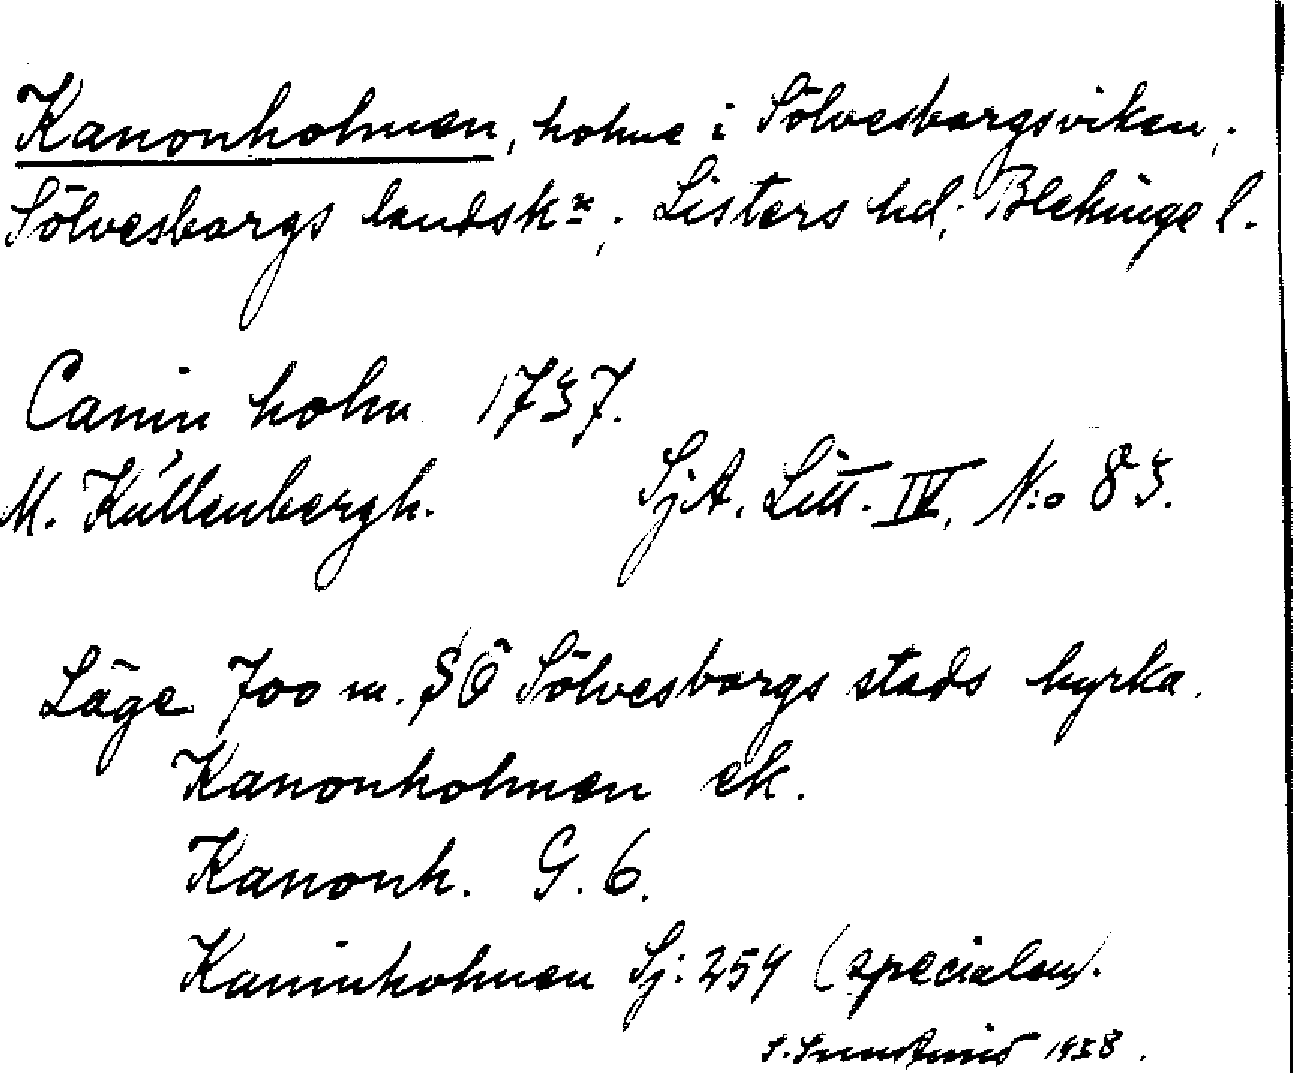 Kanonholmen, holme i Sölvesborgsviken,
Sölvesborgs landskn, Listers hd, Blekinge l.
Canin holm 1737.
M. Kullenbergh. SjA. Litt. IV, N:o 83.
Läge 700 m. SÖ Sölvesborgs stads kyrka.
Kanonholmen ek.
Kanonh. G. 6.
Kaninholmen Sj: 254 (specialen).
1938.